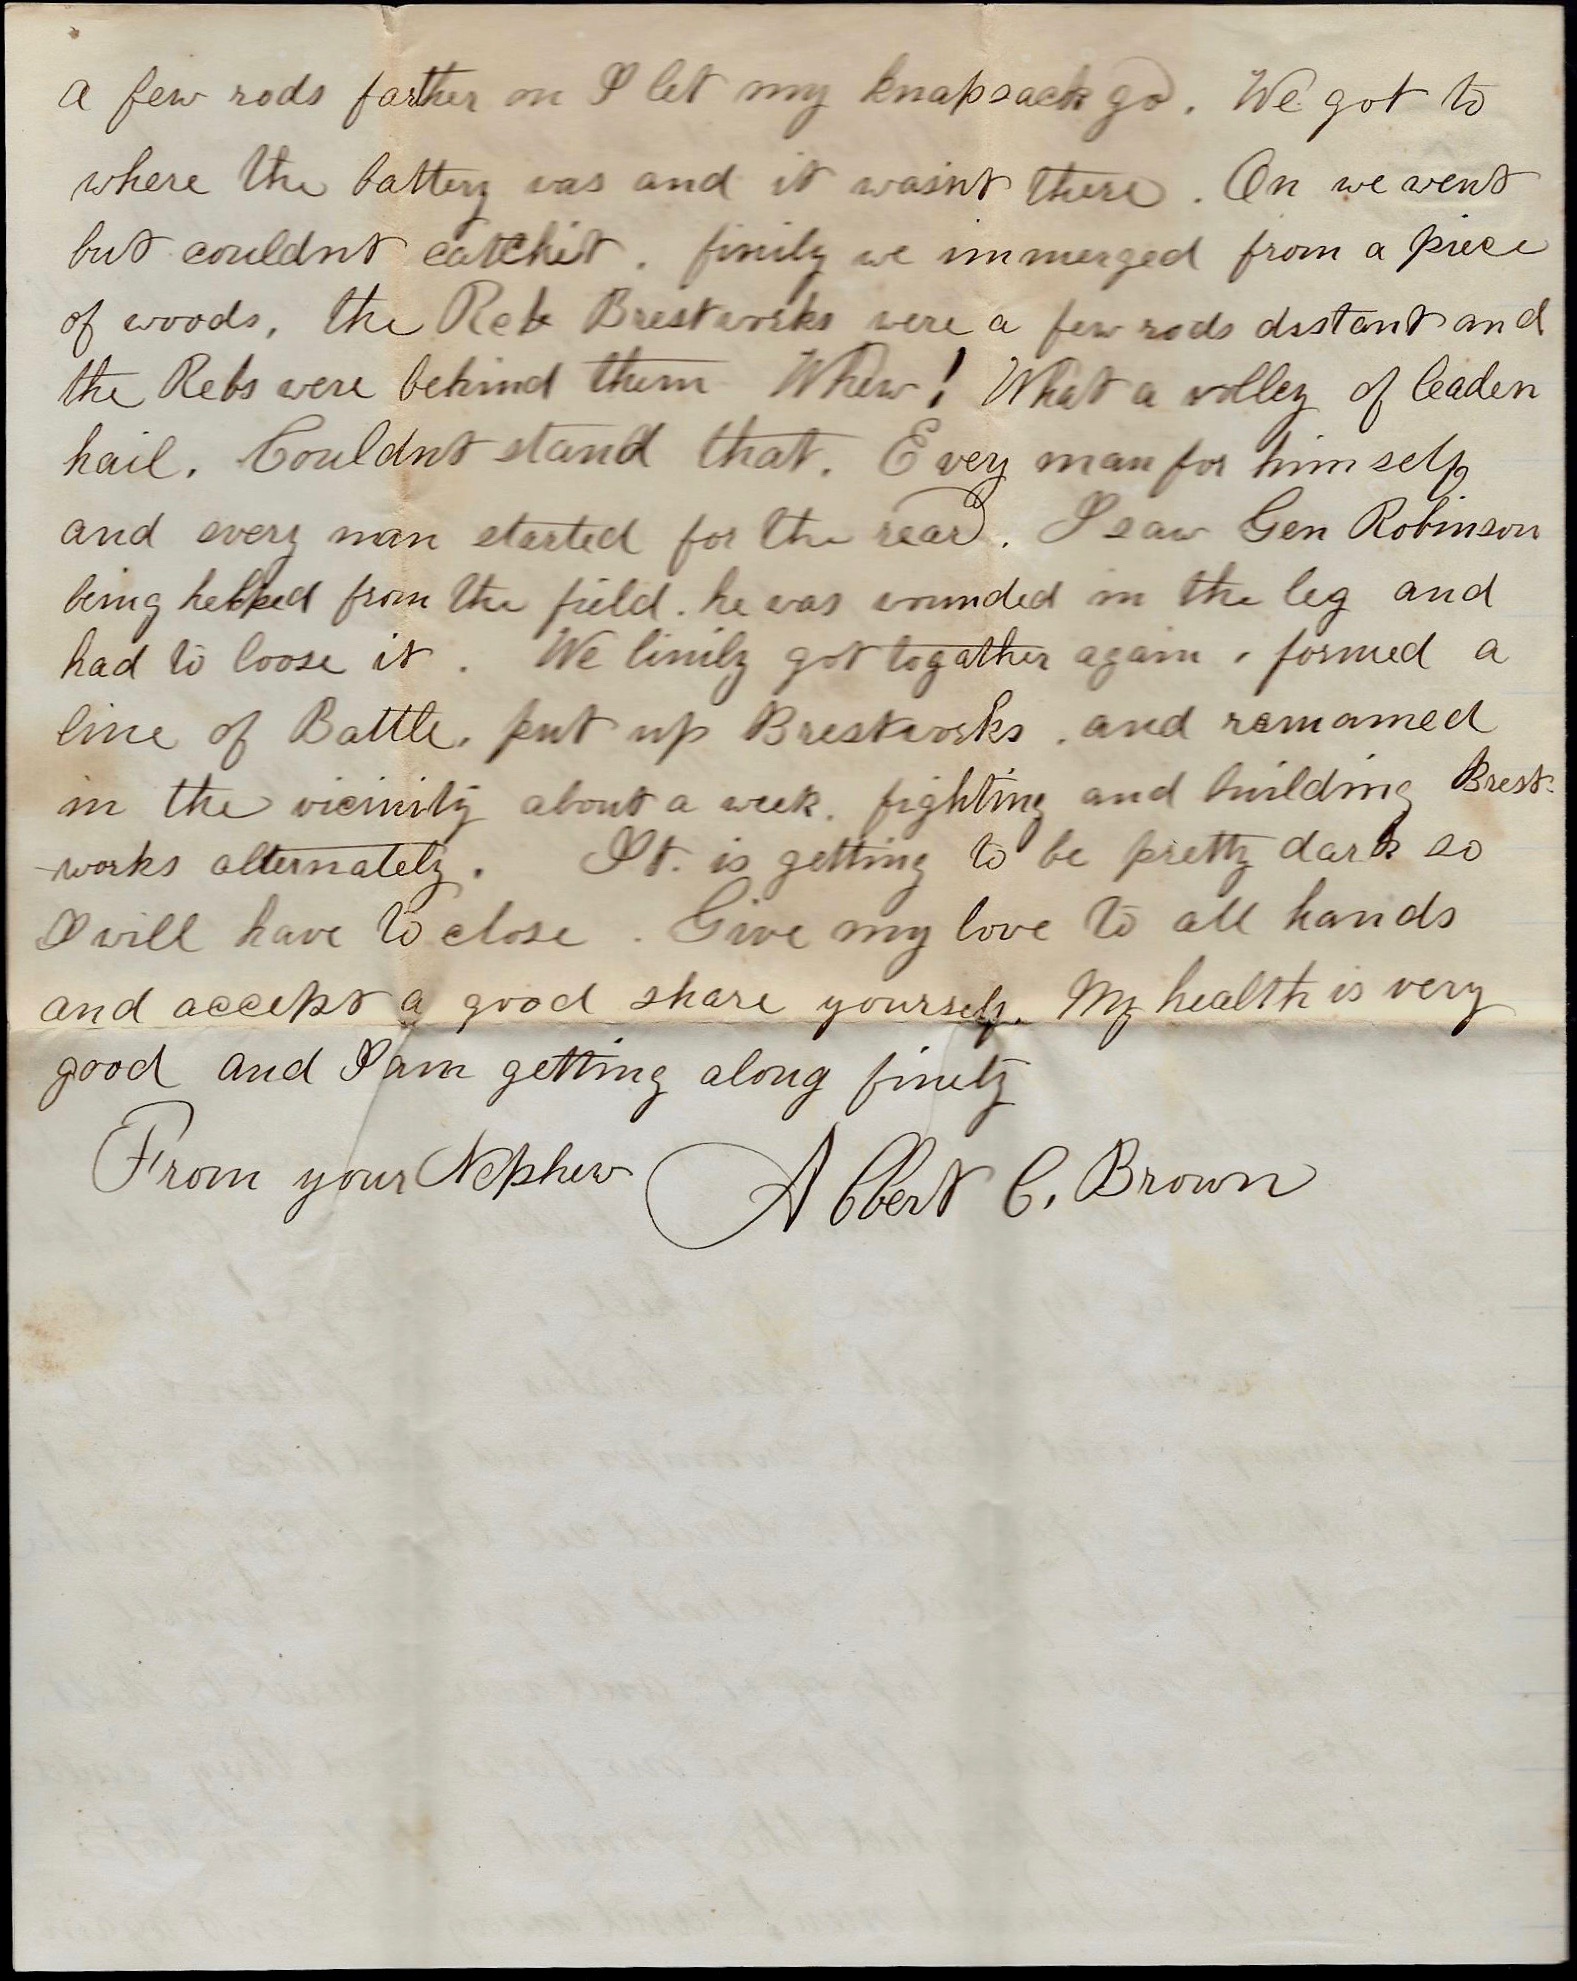 a few rods farther on I let my knapsack go. We got to
where the battery was and it wasnt there. On we went
but couldnt catch it. finily we immerged from a piece
of woods, the Reb Brestworks were a few rods distant and
the Rebs were behind them Whew! What a volley of leaden
hail. Couldnt stand that. Every man for himself
and every man started for the rear. I saw Gen Robinson
being helped from the field. he was wounded in the leg and
had to loose it. We finily got togather again, formed a
line of Battle, put up Brestworks, and remained
in the vicinity about a week. fighting and building Brest-
-works alternately. It is getting to be pretty dark so
I will have to close. Give my love to all hands
and accept a good share yourself. My health is very
good and I am getting along finely
From your Nephew Albert C. Brown